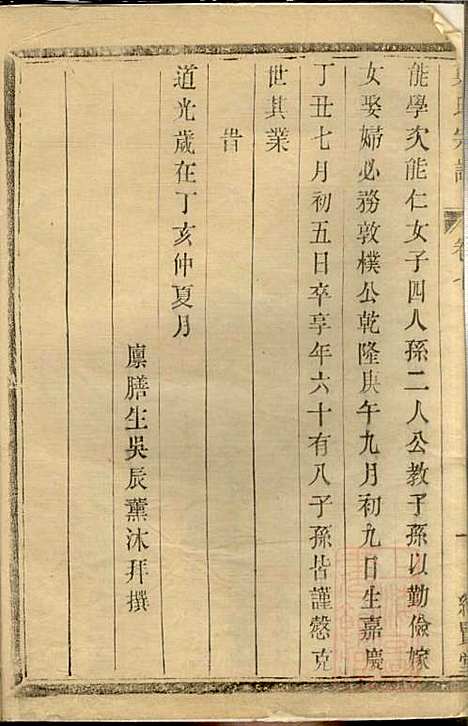 能學次能仁女子四人孫二人公教子孫以勤儉嫁
女娶婦必務敦樸公乾隆庚午九月初九日生嘉慶
丁丑七月初五日卒享年六十有八子孫皆謹慤克
世其業
旹
道光歲在丁亥仲夏月
廩膳生吳辰薰沐拜撰